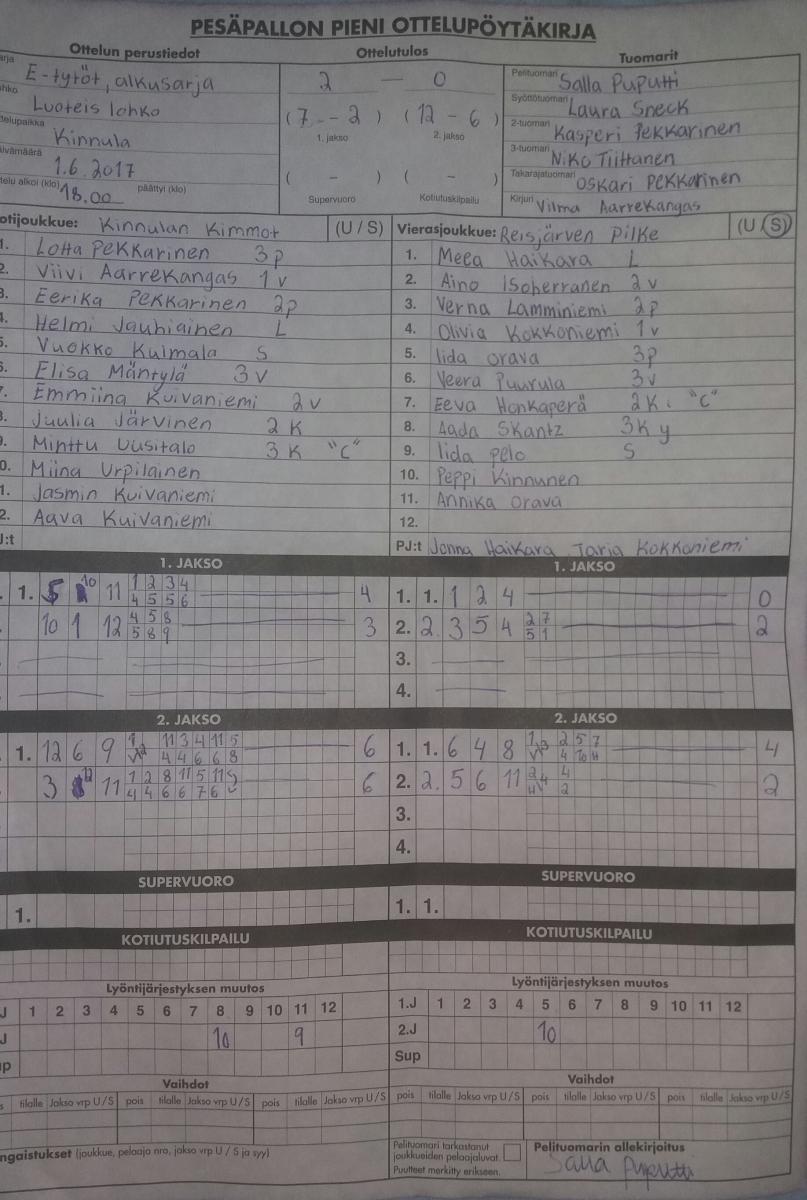 PESÄPALLON PIENI OTTELUPÖYTÄKIRJA
Ottelun perustiedot
E-tytöt, alkusarja
Luoteis lohko
Kinnula
1.6.2017
18.00 päättyi (klo)
Ottelutulos
2 — 0
(7 - 2) (12 - 6)
1. jakso 2. jakso
( - ) ( - )
Supervuoro Kotiutuskilpailu
Tuomarit
Pelituomari Salla Puputti
Syöttötuomari Laura Sneck
2-tuomari Kasperi Pekkarinen
3-tuomari Niko Tiittanen
Takarajatuomari Oskari Pekkarinen
Kirjuri Vilma Aarrekangas
otijoukkue: Kinnulan Kimmot (U / S)
1. Lotta Pekkarinen 3p
2. Viivi Aarrekangas 1v
3. Eerika Pekkarinen 2p
4. Helmi Jauhiainen L
5. Vuokko Kulmala S
6. Elisa Mäntylä 3v
7. Emmiina Kuivaniemi 2v
8. Juulia Järvinen 2K
9. Minttu Uusitalo 3K "C"
0. Miina Urpilainen
1. Jasmin Kuivaniemi
2. Aava Kuivaniemi
J:t
Vierasjoukkue: Reisjärven Pilke (U / S)
1. Meea Haikara L
2. Aino Isoherranen 2v
3. Verna Lamminiemi 2p
4. Olivia Kokkoniemi 1v
5. Iida Orava 3p
6. Veera Puurula 3v
7. Eeva Honkaperä 2K "C"
8. Aada Skantz 3K y
9. Iida Pelo S
10. Peppi Kinnunen
11. Annika Orava
12.
PJ:t Jonna Haikara Tarja Kokkoniemi
1. JAKSO
1. 5 10 11 1 2 3 4 4
4 5 5 6
10 1 12 4 5 8 3
5 8 9
1. JAKSO
1. 1. 1 2 4 0
2. 2. 3 5 4 2 7 2
5 1
3.
4.
2. JAKSO
1. 12 6 9 11 3 4 11 5 6
4 4 6 6 8
3 12 11 1 2 8 11 5 11 6
4 4 6 6 7 6
2. JAKSO
1. 1. 6 4 8 2 5 7 4
4 10 11
2. 2. 5 6 11 4 2
2
3.
4.
SUPERVUORO
1.
SUPERVUORO
1. 1.
KOTIUTUSKILPAILU
KOTIUTUSKILPAILU
Lyöntijärjestyksen muutos
J 1 2 3 4 5 6 7 8 9 10 11 12
J 10 9
up
Lyöntijärjestyksen muutos
1.J 1 2 3 4 5 6 7 8 9 10 11 12
2.J 10
Sup
Vaihdot
s tilalle Jakso vrp U/S pois tilalle Jakso vrp U/S pois tilalle Jakso vrp U/S
Vaihdot
pois tilalle Jakso vrp U/S pois tilalle Jakso vrp U/S pois tilalle Jakso vrp U/S
ngaistukset (joukkue, pelaaja nro, jakso vrp U / S ja syy)
Pelituomari tarkastanut
joukkueiden pelaajaluvat.
Puutteet merkitty erikseen.
Pelituomarin allekirjoitus
Salla Puputti